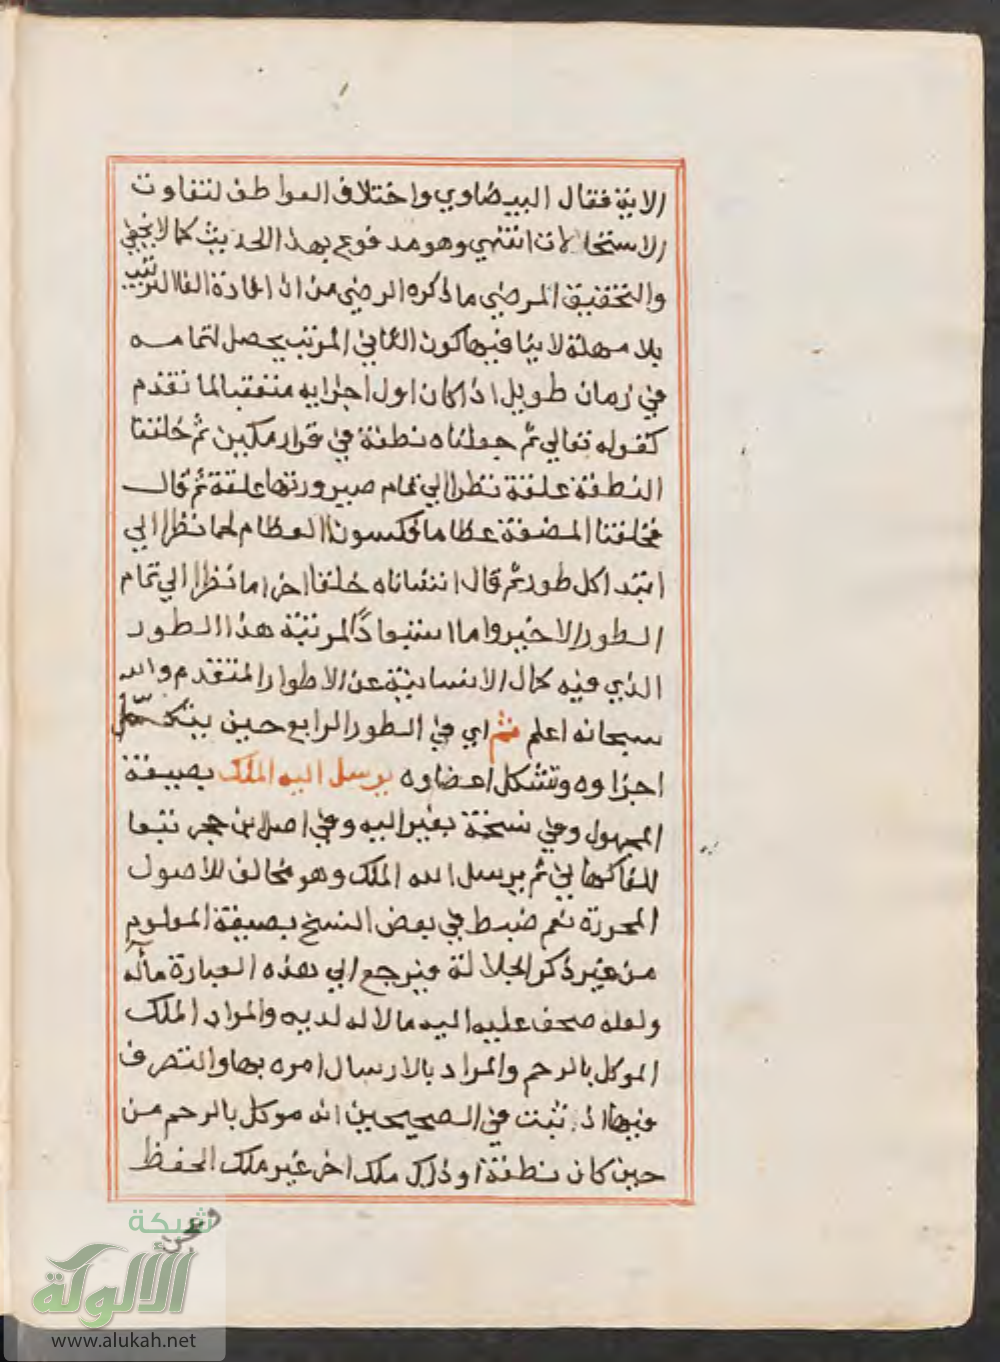 الاية فقال البيضاوي واختلاف العواطف لتفاوت
الاستحالات انتهي وهو مدفوع بهذا الحديث كما لا يخفي
والتحقيق المرضي ما ذكره الرضي من ان افادة الفا الترتيب
بلا مهلة لا ينافيها كون الثاني المرتب يحصل لتمامه
في زمان طويل اذا كان اول اجزايه متعقبا لما تقدم
كقوله تعالي ثم جعلناه نطفة في قرار مكين ثم خلقنا
النطفة علقة نظرا الي تمام صيرورتها علقة ثم قال
فخلقنا المضغة عظاما فكسونا العظام لحما نظرا الي
ابتدا كل طور ثم قال انشاناه خلقا اخر اما نظرا الي تمام
الطور الاخير واما استبعادًا لمرتبة هذا الطور
الذي فيه كمال الانسانية عن الاطوار المتقدم والله
سبحانه اعلم ثم اي في الطور الرابع حين يتكمل
اجزاوه وتتشكل اعضاوه يرسل اليه الملك بصيغة
المجهول وفي نسخة بغير اليه وفي اصل ابن حجر تبعا
للفاكهاني ثم يرسل الله الملك وهو مخالف للاصول
المحررة نعم ضبط في بعض النسخ بصيغة المعلوم
من غير ذكر الجلالة فيرجع الي هذه العبارة مآله
ولعله صحف عليه اليه مالاله لديه والمراد الملك
الموكل بالرحم والمراد بالارسال امره بها والتصرف
فيها اذ ثبت في الصحيحين انه موكل بالرحم من
حين كان نطفة او ذلك ملك اخر غير ملك الحفظ
شبكة
الألوكة
www.alukah.net